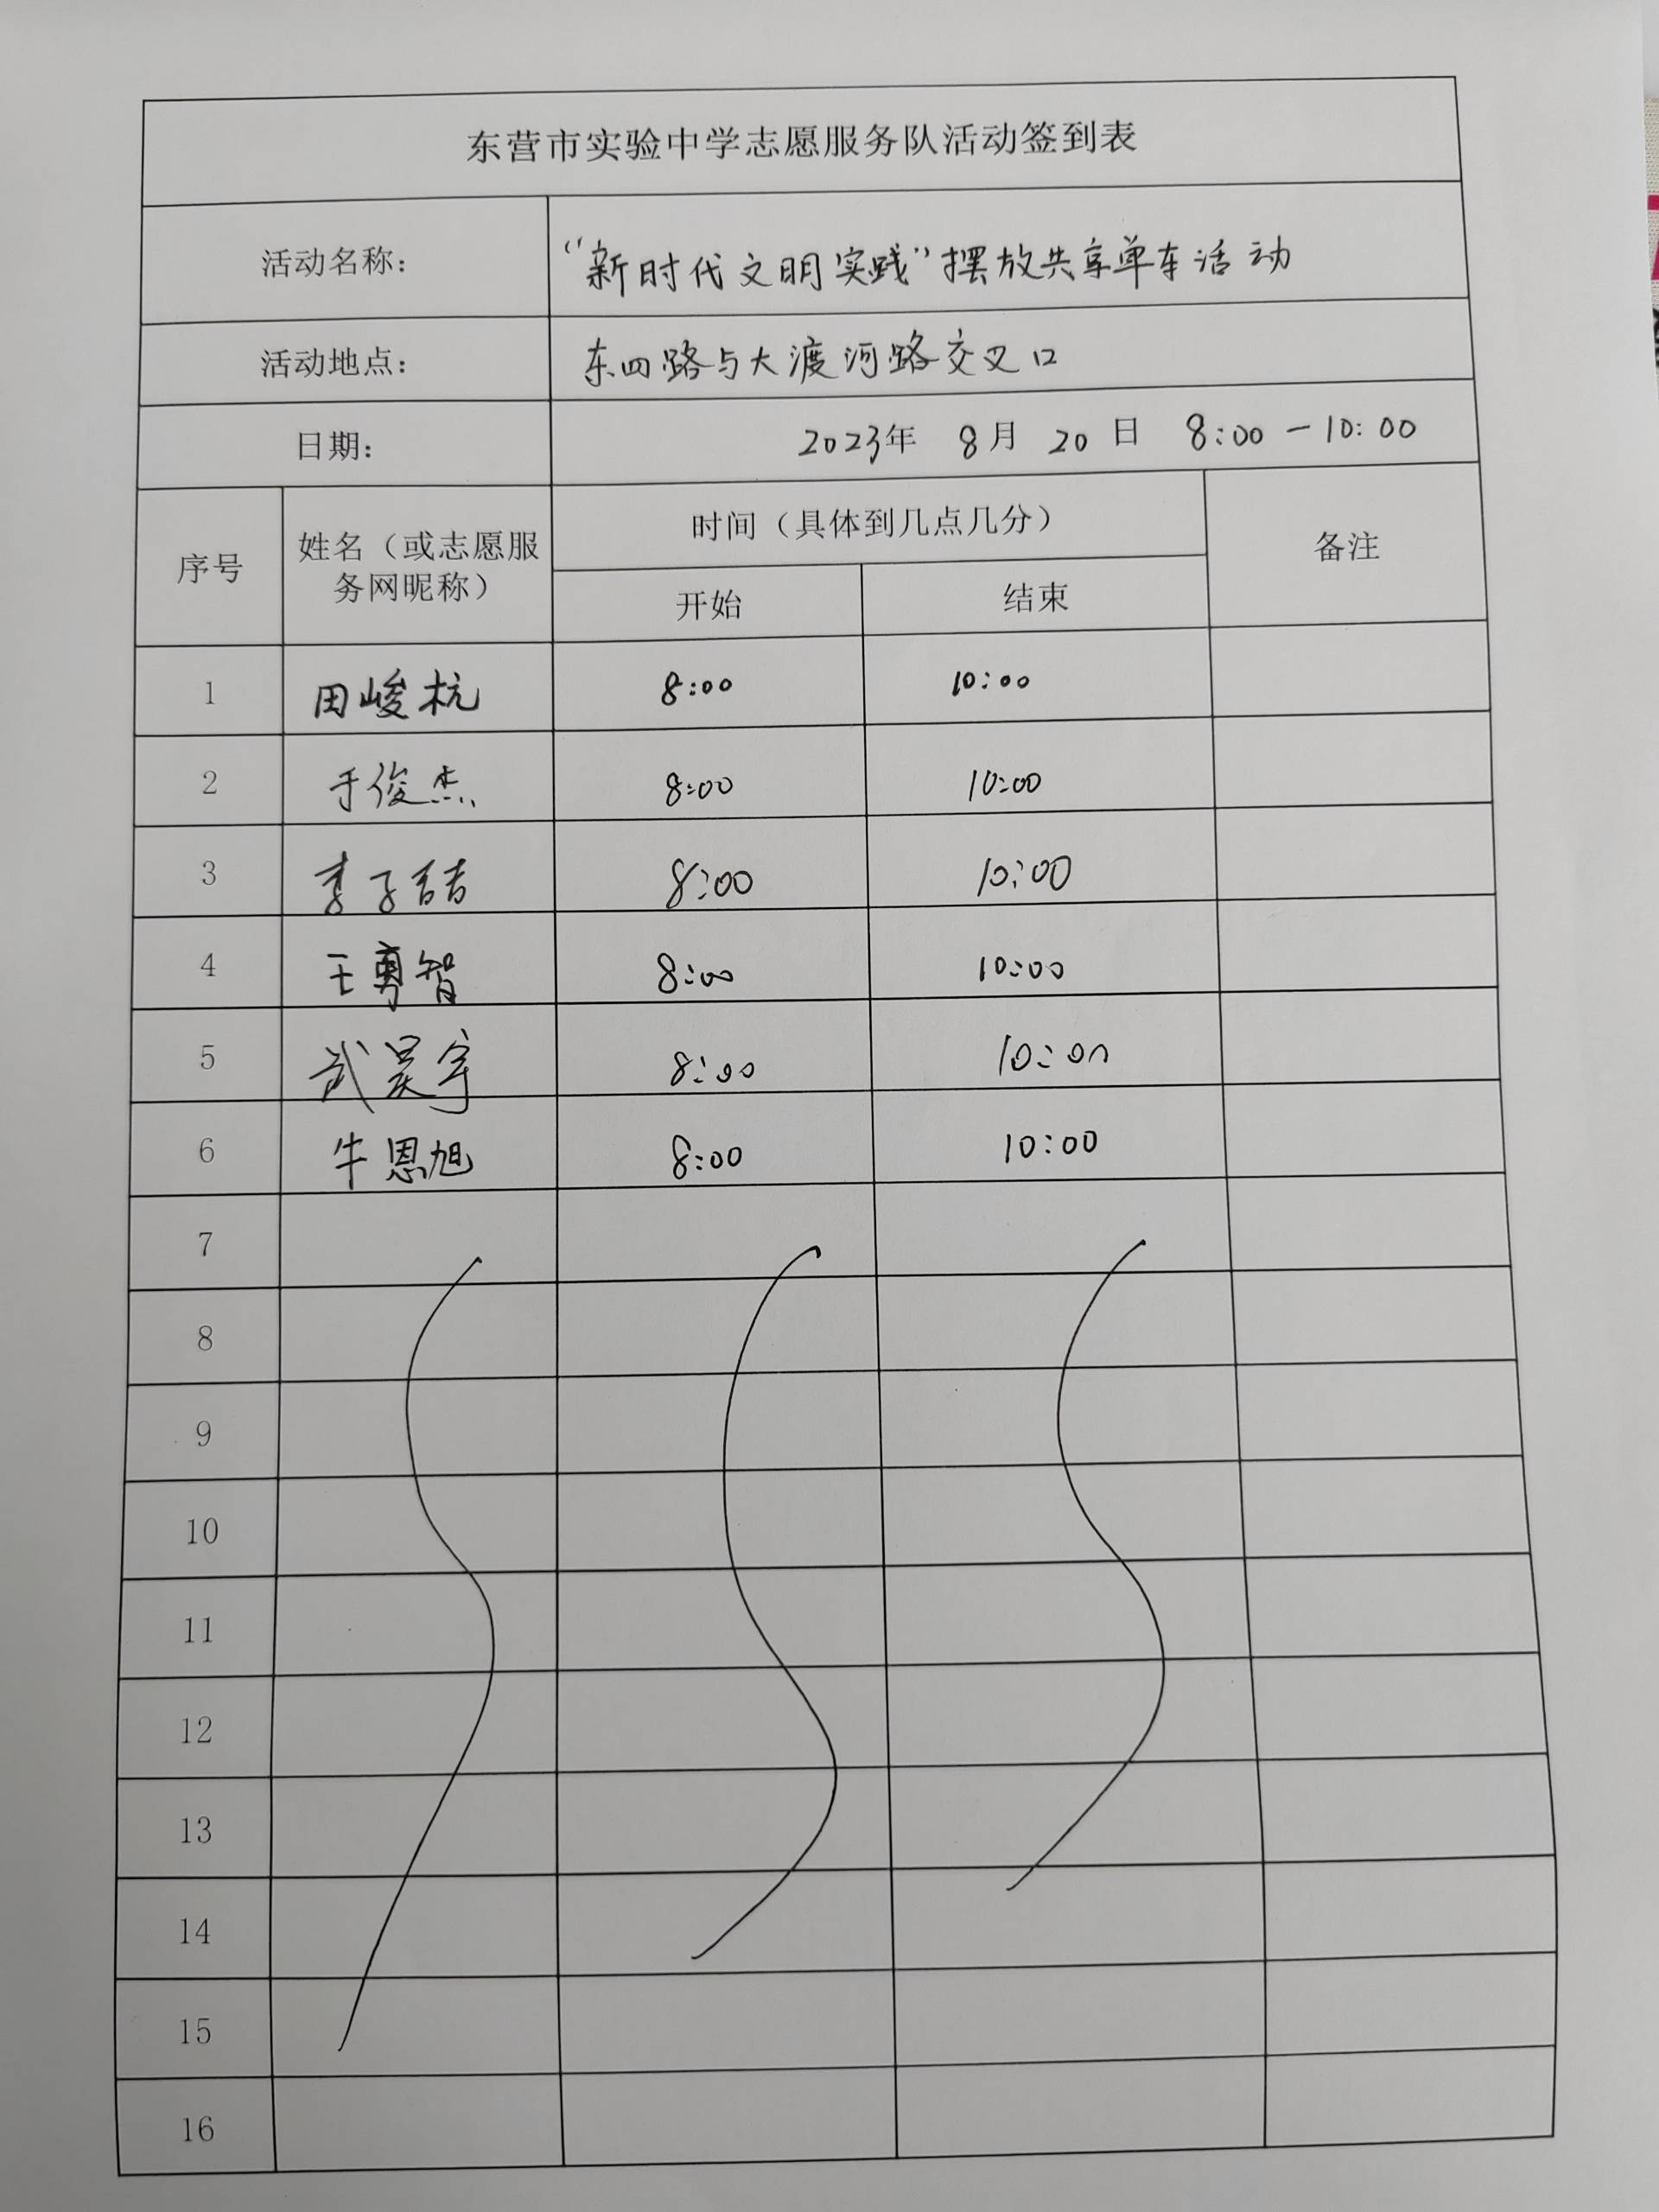 东营市实验中学志愿服务队活动签到表
活动名称： “新时代文明实践”摆放共享单车活动
活动地点： 东四路与大渡河路交叉口
日期： 2023年 8月 20日 8:00－10:00
序号 姓名（或志愿服务网昵称） 时间（具体到几点几分） 备注
开始 结束
1 田峻杭 8:00 10:00
2 于俊杰 8:00 10:00
3 李子喆 8:00 10:00
4 王勇智 8:00 10:00
5 武昊宇 8:00 10:00
6 牛恩旭 8:00 10:00
7
8
9
10
11
12
13
14
15
16